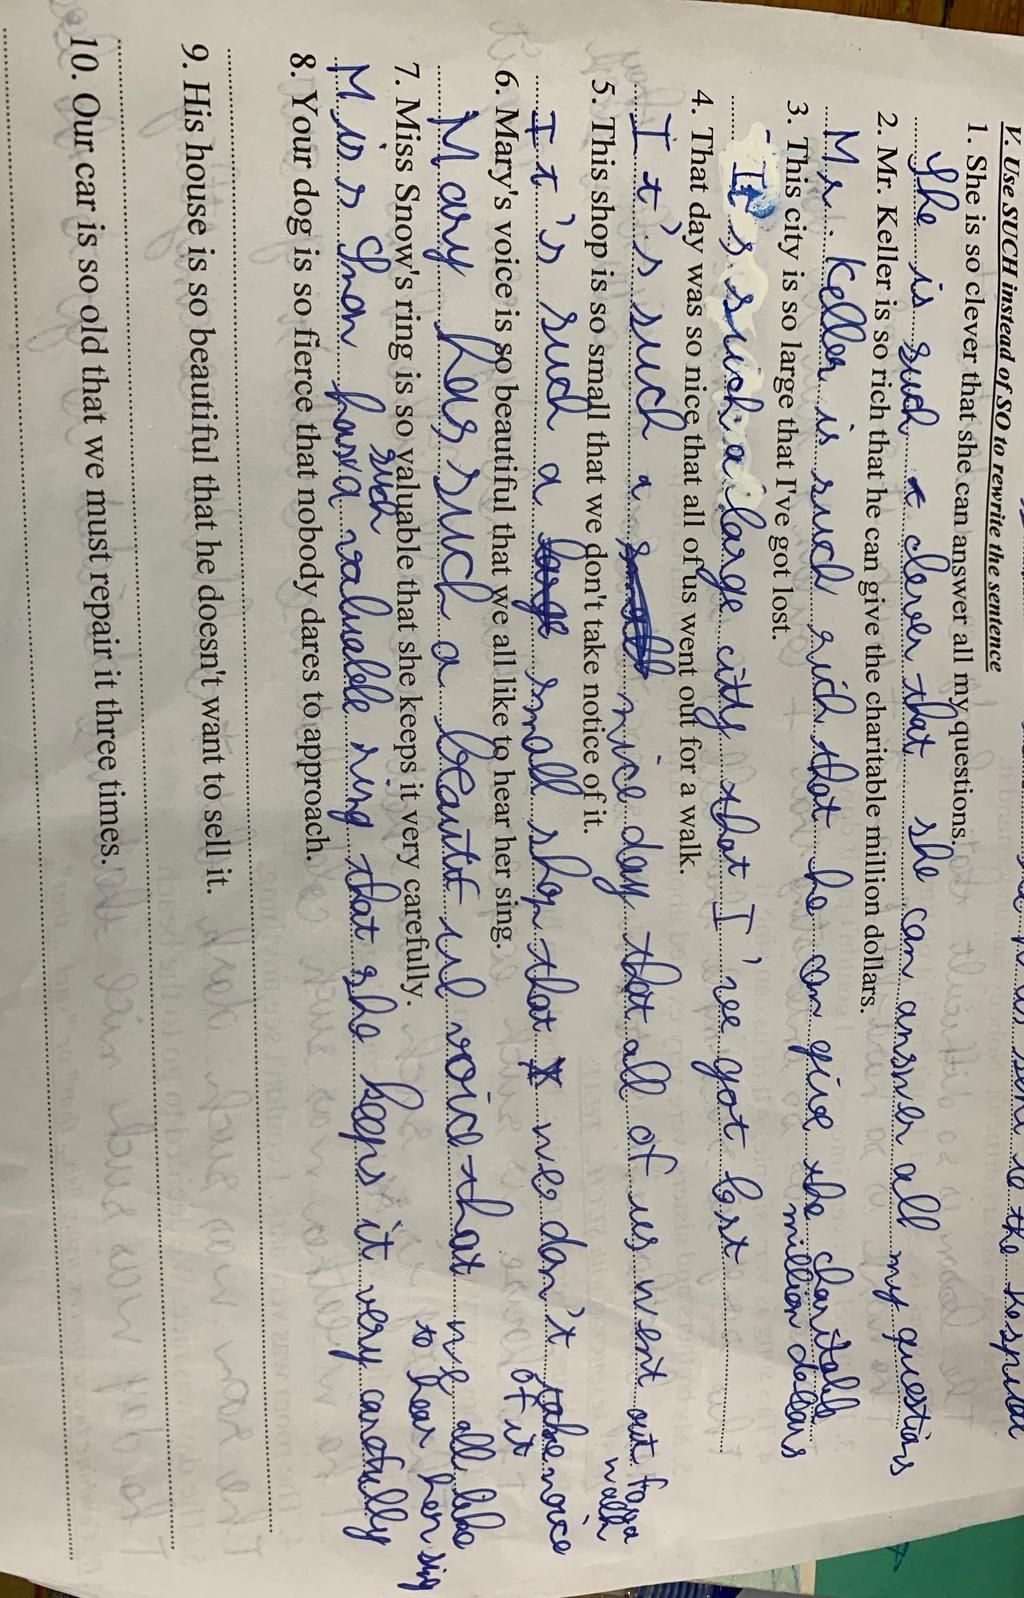 V. Use SUCH instead of SO to rewrite the sentence
1. She is so clever that she can answer all my questions.
She is such a clever that she can answer all my questions
2. Mr. Keller is so rich that he can give the charitable million dollars.
Mr. Keller is such rich that he can give the charitable
million dollars
3. This city is so large that I've got lost.
It's such a large city that I've got lost
4. That day was so nice that all of us went out for a walk.
It's such a nice day that all of us went out for a
walk
5. This shop is so small that we don't take notice of it.
It's such a small shop that we don't take notice
of it
6. Mary's voice is so beautiful that we all like to hear her sing.
Mary has such a beautiful voice that we all like
to hear her sing
7. Miss Snow's ring is so valuable that she keeps it very carefully.
such
Miss Snow has a valuable ring that she keeps it very carefully
8. Your dog is so fierce that nobody dares to approach.
9. His house is so beautiful that he doesn't want to sell it.
10. Our car is so old that we must repair it three times.